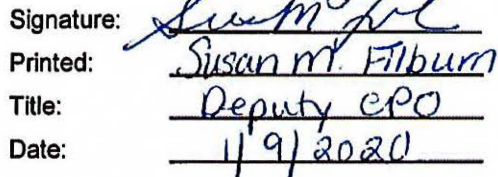 Signature:
Printed: Susan M. Filburn
Title: Deputy CPO
Date: 1/9/2020